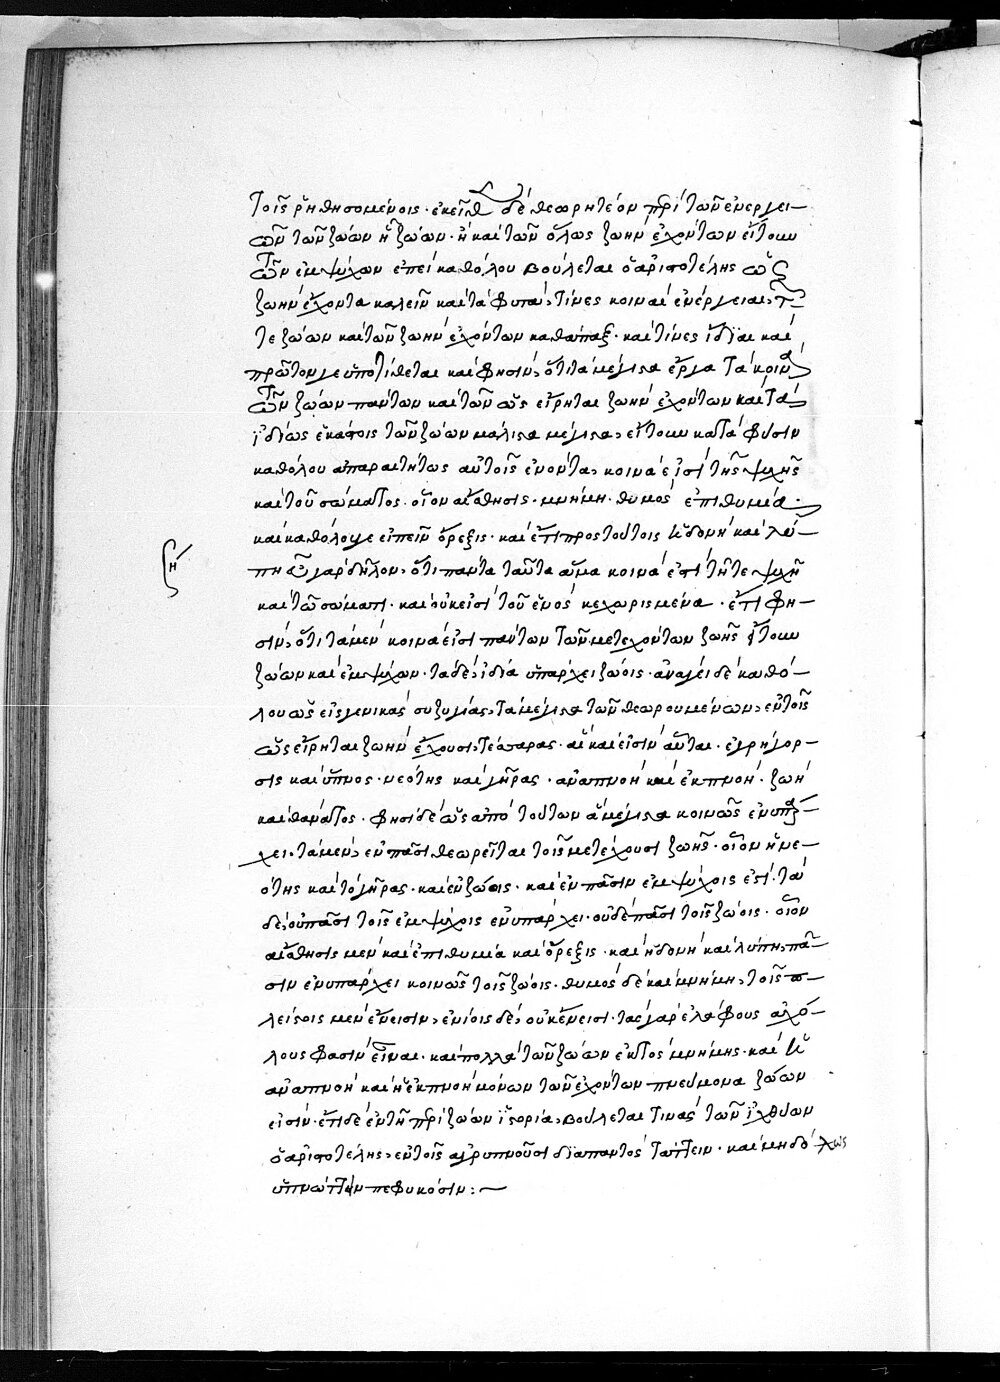 τοῖς ῥηθησομένοις· ἐκεῖθεν δὲ θεωρητέον περὶ τῶν ἐνεργει-
ῶν τῶν ζώων ᾗ ζώων· ἢ καὶ τῶν ὅλως ζωὴν ἐχόντων εἴτουν
τῶν ἐμψύχων ἐπεὶ καθόλου βούλεται ὁ ἀριστοτέλης ὡς
ζωὴν ἔχοντα καλεῖν καὶ τὰ φυτὰ, τίνες κοιναὶ ἐνέργειαι, τῶν
τε ζώων καὶ τῶν ζωὴν ἐχόντων καθάπαξ· καὶ τίνες ἴδιαι καὶ
πρῶτον γε ὑποτίθεται καὶ φησὶν, ὅτι τὰ μέγιστα ἔργα τὰ κοινὰ
τῶν ζώων πάντων καὶ τῶν ὡς εἴρηται ζωὴν ἐχόντων καὶ τὰ
ἰδίως ἑκάστοις τῶν ζώων μάλιστα μέγιστα, εἴτουν κατὰ φύσιν
καθόλου ἀπαραιτήτως αὐτοῖς ἐνόντα, κοινά εἰσι τῆς ψυχῆς
καὶ τοῦ σώματος· οἷον αἴσθησις· μνήμη· θυμὸς ἐπιθυμία·
καὶ καθόλου γε εἰπεῖν ὄρεξις· καὶ ἔτι πρὸς τούτοις ἡδονὴ καὶ λύ-
η
πη ὧ γὰρ δῆλον, ὅτι πάντα ταῦτα ἅμα κοινά ἐστι τῇ τε ψυχῇ
καὶ τῷ σώματι· καὶ οὐκ εἰσὶ τοῦ ἑνὸς κεχωρισμένα· ἔτι φη-
σὶν, ὅτι τὰ μὲν κοινά εἰσι πάντων τῶν μετεχόντων ζωῆς εἴτουν
ζώων καὶ ἐμψύχων· τὰ δὲ, ἰδία ὑπάρχει ζώοις· ἀνάγει δὲ καθό-
λου ὡς εἰς γενικὰς συζυγίας, τὰ μέγιστα τῶν θεωρουμένων, ἐν τοῖς
ὡς εἴρηται ζωὴν ἔχουσι, τέσσαρας· αἳ καὶ εἰσὶν αὗται· ἐγρήγορ-
σις καὶ ὕπνος· νεότης καὶ γῆρας· ἀναπνοὴ καὶ ἐκπνοή· ζωὴ
καὶ θάνατος· φησὶ δὲ ὡς ἀπὸ τούτων ἃ μέγιστα κοινῶς ἐνυπάρ-
χει· τὰ μὲν, ἐν πᾶσι θεωρεῖται τοῖς μετέχουσι ζωῆς· οἷον ἡ νε-
ότης καὶ τὸ γῆρας· καὶ ἐν ζώοις· καὶ ἐν πᾶσιν ἐμψύχοις ἐστί· τὰ
δὲ, οὐ πᾶσι τοῖς ἐμψύχοις ἐνυπάρχει· οὐδὲ πᾶσι τοῖς ζώοις· οἷον
αἴσθησις μὲν καὶ ἐπιθυμία καὶ ὄρεξις· καὶ ἡδονὴ καὶ λύπη, πᾶ-
σιν ἐνυπάρχει κοινῶς τοῖς ζώοις· θυμὸς δὲ καὶ μνήμη, τοῖς π-
λείστοις μὲν ἔνεισιν, ἐνίοις δὲ, οὐκ ἔνεισι· τὰς γὰρ ἐλάφους ἀχό-
λους φασὶν εἶναι· καὶ πολλὰ τῶν ζώων ἐκτὸς μνήμης· καὶ ἡ
ἀναπνοὴ καὶ ἡ ἐκπνοὴ μόνων τῶν ἐχόντων πνεύμονα ζώων
εἰσίν· ἔτι δὲ ἐν τῇ περὶ ζώων ἱστορία, βούλεται τινὰς τῶν ἰχθύων
ὁ ἀριστοτέλης, ἐν τοῖς ἀγρυπνοῦσι διαπαντὸς τάττειν· καὶ μηδόλως
ὑπνώττειν πεφυκόσιν:—